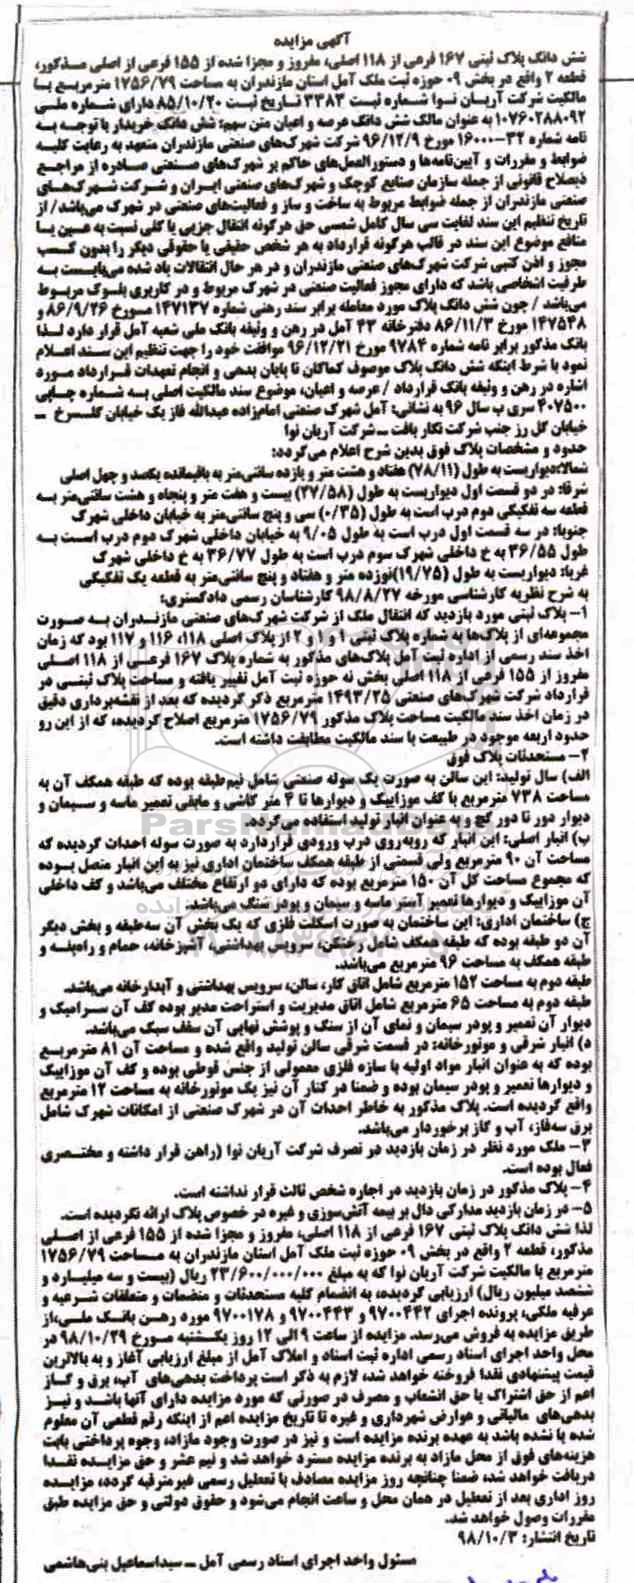 آگهی مزایده
شش دانگ پلاک ثبتی ۱۶۷ فرعی از ۱۱۸ اصلی، مفروز و مجزا شده از ۱۵۵ فرعی از اصلی مذکور،
قطعه ۲ واقع در بخش ۰۹ حوزه ثبت ملک آمل استان مازندران به مساحت ۱۷۵۶/۷۹ مترمربع با
مالکیت شرکت آریان نوا شماره ثبت ۳۳۸۳ تاریخ ثبت ۸۵/۱۰/۲۰ دارای شماره ملی
۱۰۷۶۰۲۸۸۰۹۲ به عنوان مالک شش دانگ عرصه و اعیان متن سهم: شش دانگ خریدار با توجه به
نامه شماره ۳۲-۱۶۰۰۰ مورخ ۹۶/۱۲/۹ شرکت شهرک‌های صنعتی مازندران متعهد به رعایت کلیه
ضوابط و مقررات و آیین‌نامه‌ها و دستورالعمل‌های حاکم بر شهرک‌های صنعتی صادره از مراجع
ذیصلاح قانونی از جمله سازمان صنایع کوچک و شهرک‌های صنعتی ایران و شرکت شهرک‌های
صنعتی مازندران از جمله ضوابط مربوط به ساخت و ساز و فعالیت‌های صنعتی در شهرک می‌باشد/ از
تاریخ تنظیم این سند لغایت سی سال کامل شمسی حق هرگونه انتقال جزیی یا کلی نسبت به عین یا
منافع موضوع این سند در قالب هرگونه قرارداد به هر شخص حقیقی یا حقوقی دیگر را بدون کسب
مجوز و اذن کتبی شرکت شهرک‌های صنعتی مازندران و در هر حال انتقالات یاد شده می‌بایست به
ظرفیت اشخاصی باشد که دارای مجوز فعالیت صنعتی در شهرک مربوط و در کاربری بلوک مربوط
می‌باشد / چون شش دانگ پلاک مورد معامله برابر سند رهنی شماره ۱۴۷۱۳۷ مورخ ۸۶/۹/۲۶ و
۱۴۷۵۴۸ مورخ ۸۶/۱۱/۳ دفترخانه ۴۳ آمل در رهن و وثیقه بانک ملی شعبه آمل قرار دارد لذا
بانک مذکور برابر نامه شماره ۹۷۸۴ مورخ ۹۶/۱۲/۲۱ موافقت خود را جهت تنظیم این سند اعلام
نمود با شرط اینکه شش دانگ پلاک موصوف کماکان تا پایان بدهی و انجام تعهدات قرارداد مورد
اشاره در رهن و وثیقه بانک قرارداد / عرصه و اعیان، موضوع سند مالکیت اصلی به شماره چاپی
۴۰۷۵۰۰ سری ب سال ۹۶ به نشانی: آمل شهرک صنعتی امام‌زاده عبدالله فاز یک خیابان گلسرخ ـ
خیابان گل رز جنب شرکت نگار بافت ـ شرکت آریان نوا
حدود و مشخصات پلاک فوق بدین شرح اعلام می‌گردد:
شمالا: دیواریست به طول (۷۸/۱۱) هفتاد و هشت متر و یازده سانتی‌متر به باقیمانده یکصد و چهل اصلی
شرقا: در دو قسمت اول دیواریست به طول (۲۷/۵۸) بیست و هفت متر و پنجاه و هشت سانتی‌متر به
قطعه سه تفکیکی دوم درب است به طول (۰/۳۵) سی و پنج سانتی‌متر به خیابان داخلی شهرک
جنوبا: در سه قسمت اول درب است به طول ۹/۰۵ به خیابان داخلی شهرک دوم درب است به
طول ۳۶/۵۵ به خ داخلی شهرک سوم درب است به طول ۳۶/۷۷ به خ داخلی شهرک
غربا: دیواریست به طول (۱۹/۷۵) نوزده متر و هفتاد و پنج سانتی‌متر به قطعه یک تفکیکی
به شرح نظریه کارشناسی مورخه ۹۸/۸/۲۷ کارشناسان رسمی دادگستری:
۱- پلاک ثبتی مورد بازدید که انتقال ملک از شرکت شهرک‌های صنعتی مازندران به صورت
مجموعه‌ای از پلاک‌ها به شماره پلاک ثبتی ۱ و ۱ و ۲ از پلاک اصلی ۱۱۸، ۱۱۶ و ۱۱۷ بود که زمان
اخذ سند رسمی از اداره ثبت آمل پلاک‌های مذکور به شماره پلاک ۱۶۷ فرعی از ۱۱۸ اصلی
مفروز از ۱۵۵ فرعی از ۱۱۸ اصلی بخش نه حوزه ثبت آمل تغییر یافته و مساحت پلاک ثبتی در
قرارداد شرکت شهرک‌های صنعتی ۱۴۹۳/۲۵ مترمربع ذکر گردیده که بعد از نقشه‌برداری دقیق
در زمان اخذ سند مالکیت مساحت پلاک مذکور ۱۷۵۶/۷۹ مترمربع اصلاح گردیده، که از این رو
حدود اربعه موجود در طبیعت با سند مالکیت مطابقت داشته است.
۲- مستحدثات پلاک فوق
الف) سال تولید: این سالن به صورت یک سوله صنعتی شامل نیم‌طبقه بوده که طبقه همکف آن به
مساحت ۷۳۸ مترمربع با کف موزاییک و دیوارها تا ۴ متر کاشی و مابقی تعمیر ماسه و سیمان و
دیوار دور تا دور گچ و به عنوان انبار تولید استفاده می‌گردد.
ب) انبار اصلی: این انبار که روبه‌روی درب ورودی قراردارد به صورت سوله احداث گردیده که
مساحت آن ۹۰ مترمربع ولی قسمتی از طبقه همکف ساختمان اداری نیز به این انبار متصل بوده
که مجموع مساحت کل آن ۱۵۰ مترمربع بوده که دارای دو ارتفاع مختلف می‌باشد و کف داخلی
آن موزاییک و دیوارها تعمیر آستر ماسه و سیمان و پودر سنگ می‌باشد.
ج) ساختمان اداری: این ساختمان به صورت اسکلت فلزی که یک بخش آن سه‌طبقه و بخش دیگر
آن دو طبقه بوده که طبقه همکف شامل رختکن، سرویس بهداشتی، آشپزخانه، حمام و راه‌پله و
طبقه همکف به مساحت ۹۶ مترمربع می‌باشد.
طبقه دوم به مساحت ۱۵۲ مترمربع شامل اتاق کار، سالن، سرویس بهداشتی و آبدارخانه می‌باشد.
طبقه دوم به مساحت ۶۵ مترمربع شامل اتاق مدیریت و استراحت مدیر بوده کف آن سرامیک و
دیوار آن تعمیر و پودر سیمان و نمای آن از سنگ و پوشش نهایی آن سقف سبک می‌باشد.
د) انبار شرقی و موتورخانه: در قسمت شرقی سالن تولید واقع شده و مساحت آن ۸۱ مترمربع
بوده که به عنوان انبار مواد اولیه با سازه فلزی معمولی از جنس قوطی بوده و کف آن موزاییک
و دیوارها تعمیر و پودر سیمان بوده و ضمنا در کنار آن نیز یک موتورخانه به مساحت ۱۲ مترمربع
واقع گردیده است. پلاک مذکور به خاطر احداث آن در شهرک صنعتی از امکانات شهرک شامل
برق سه‌فاز، آب و گاز برخوردار می‌باشد.
۳- ملک مورد نظر در زمان بازدید در تصرف شرکت آریان نوا (راهن قرار داشته و مختصری
فعال بوده است.
۴- پلاک مذکور در زمان بازدید در اجاره شخص ثالث قرار نداشته است.
۵- در زمان بازدید مدارکی دال بر بیمه آتش‌سوزی و غیره در خصوص پلاک ارائه نگردیده است.
لذا شش دانگ پلاک ثبتی ۱۶۷ فرعی از ۱۱۸ اصلی، مفروز و مجزا شده از ۱۵۵ فرعی از اصلی
مذکور، قطعه ۲ واقع در بخش ۰۹ حوزه ثبت ملک آمل استان مازندران به مساحت ۱۷۵۶/۷۹
مترمربع با مالکیت شرکت آریان نوا که به مبلغ ۲۳/۶۰۰/۰۰۰/۰۰۰ ریال (بیست و سه میلیارد و
ششصد میلیون ریال) ارزیابی گردیده، به انضمام کلیه مستحدثات و منضمات و متعلقات شرعیه و
عرفیه ملکی، پرونده اجرای ۹۷۰۰۴۴۲ و ۹۷۰۰۴۴۳ و ۹۷۰۰۱۷۸ مورد رهن بانک ملی، از
طریق مزایده به فروش می‌رسد. مزایده از ساعت ۹ الی ۱۲ روز یکشنبه مورخ ۹۸/۱۰/۲۹ در
محل واحد اجرای اسناد رسمی اداره ثبت اسناد و املاک آمل از مبلغ ارزیابی آغاز و به بالاترین
قیمت پیشنهادی نقدا فروخته خواهد شد، لازم به ذکر است پرداخت بدهی‌های آب، برق و گاز
اعم از حق اشتراک یا حق انشعاب و مصرف در صورتی که مورد مزایده دارای آنها باشد و نیز
بدهی‌های مالیاتی و عوارض شهرداری و غیره تا تاریخ مزایده اعم از اینکه رقم قطعی آن معلوم
شده یا نشده باشد به عهده برنده مزایده است و نیز در صورت وجود مازاد، وجوه پرداختی بابت
هزینه‌های فوق از محل مازاد به برنده مزایده مسترد خواهد شد و نیم عشر و حق مزایده نقدا
دریافت خواهد شد، ضمنا چنانچه روز مزایده مصادف با تعطیل رسمی غیرمترقبه گردد، مزایده
روز اداری بعد از تعطیل در همان محل و ساعت انجام می‌شود و حقوق دولتی و حق مزایده طبق
مقررات وصول خواهد شد.
تاریخ انتشار: ۹۸/۱۰/۳
مسئول واحد اجرای اسناد رسمی آمل ـ سیداسماعیل بنی‌هاشمی